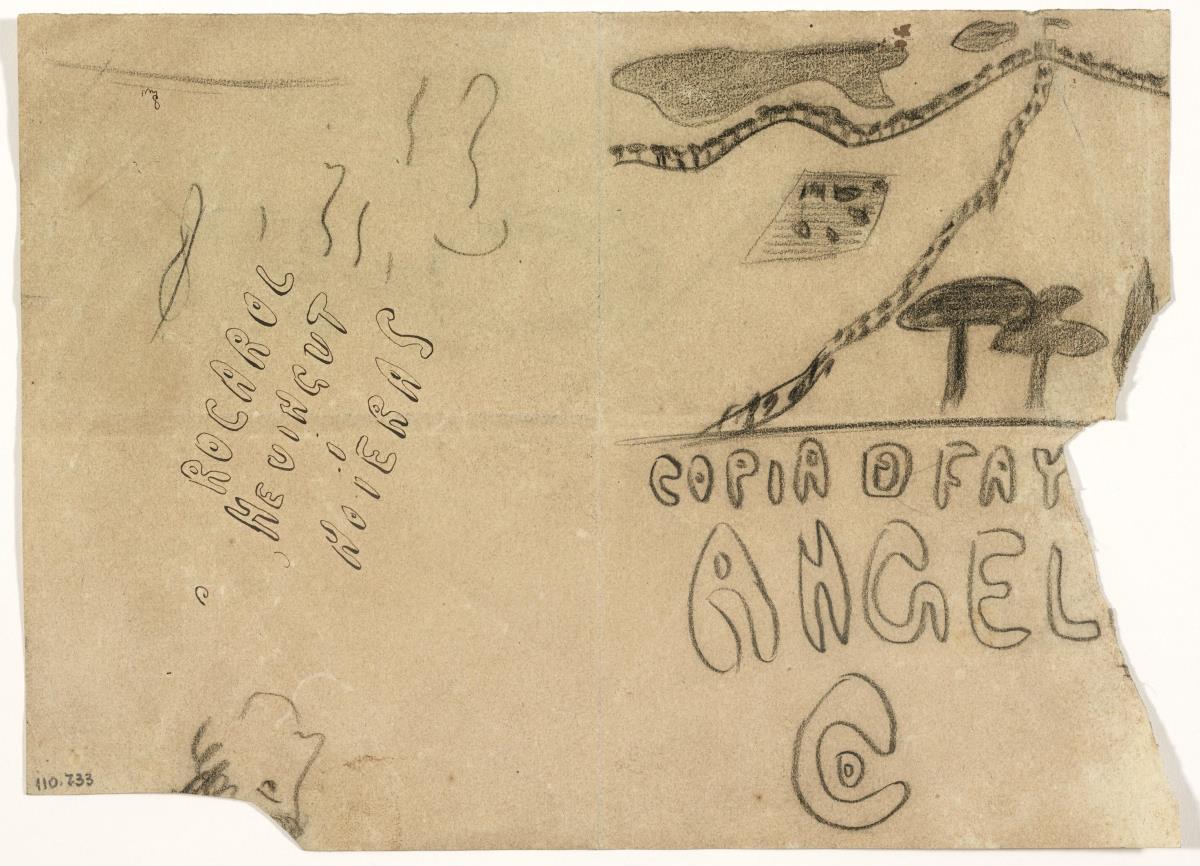 ROCAROL
HE VINGUT
i
NO I ERAS
COPIA D FAY
ANGEL
C
110.733